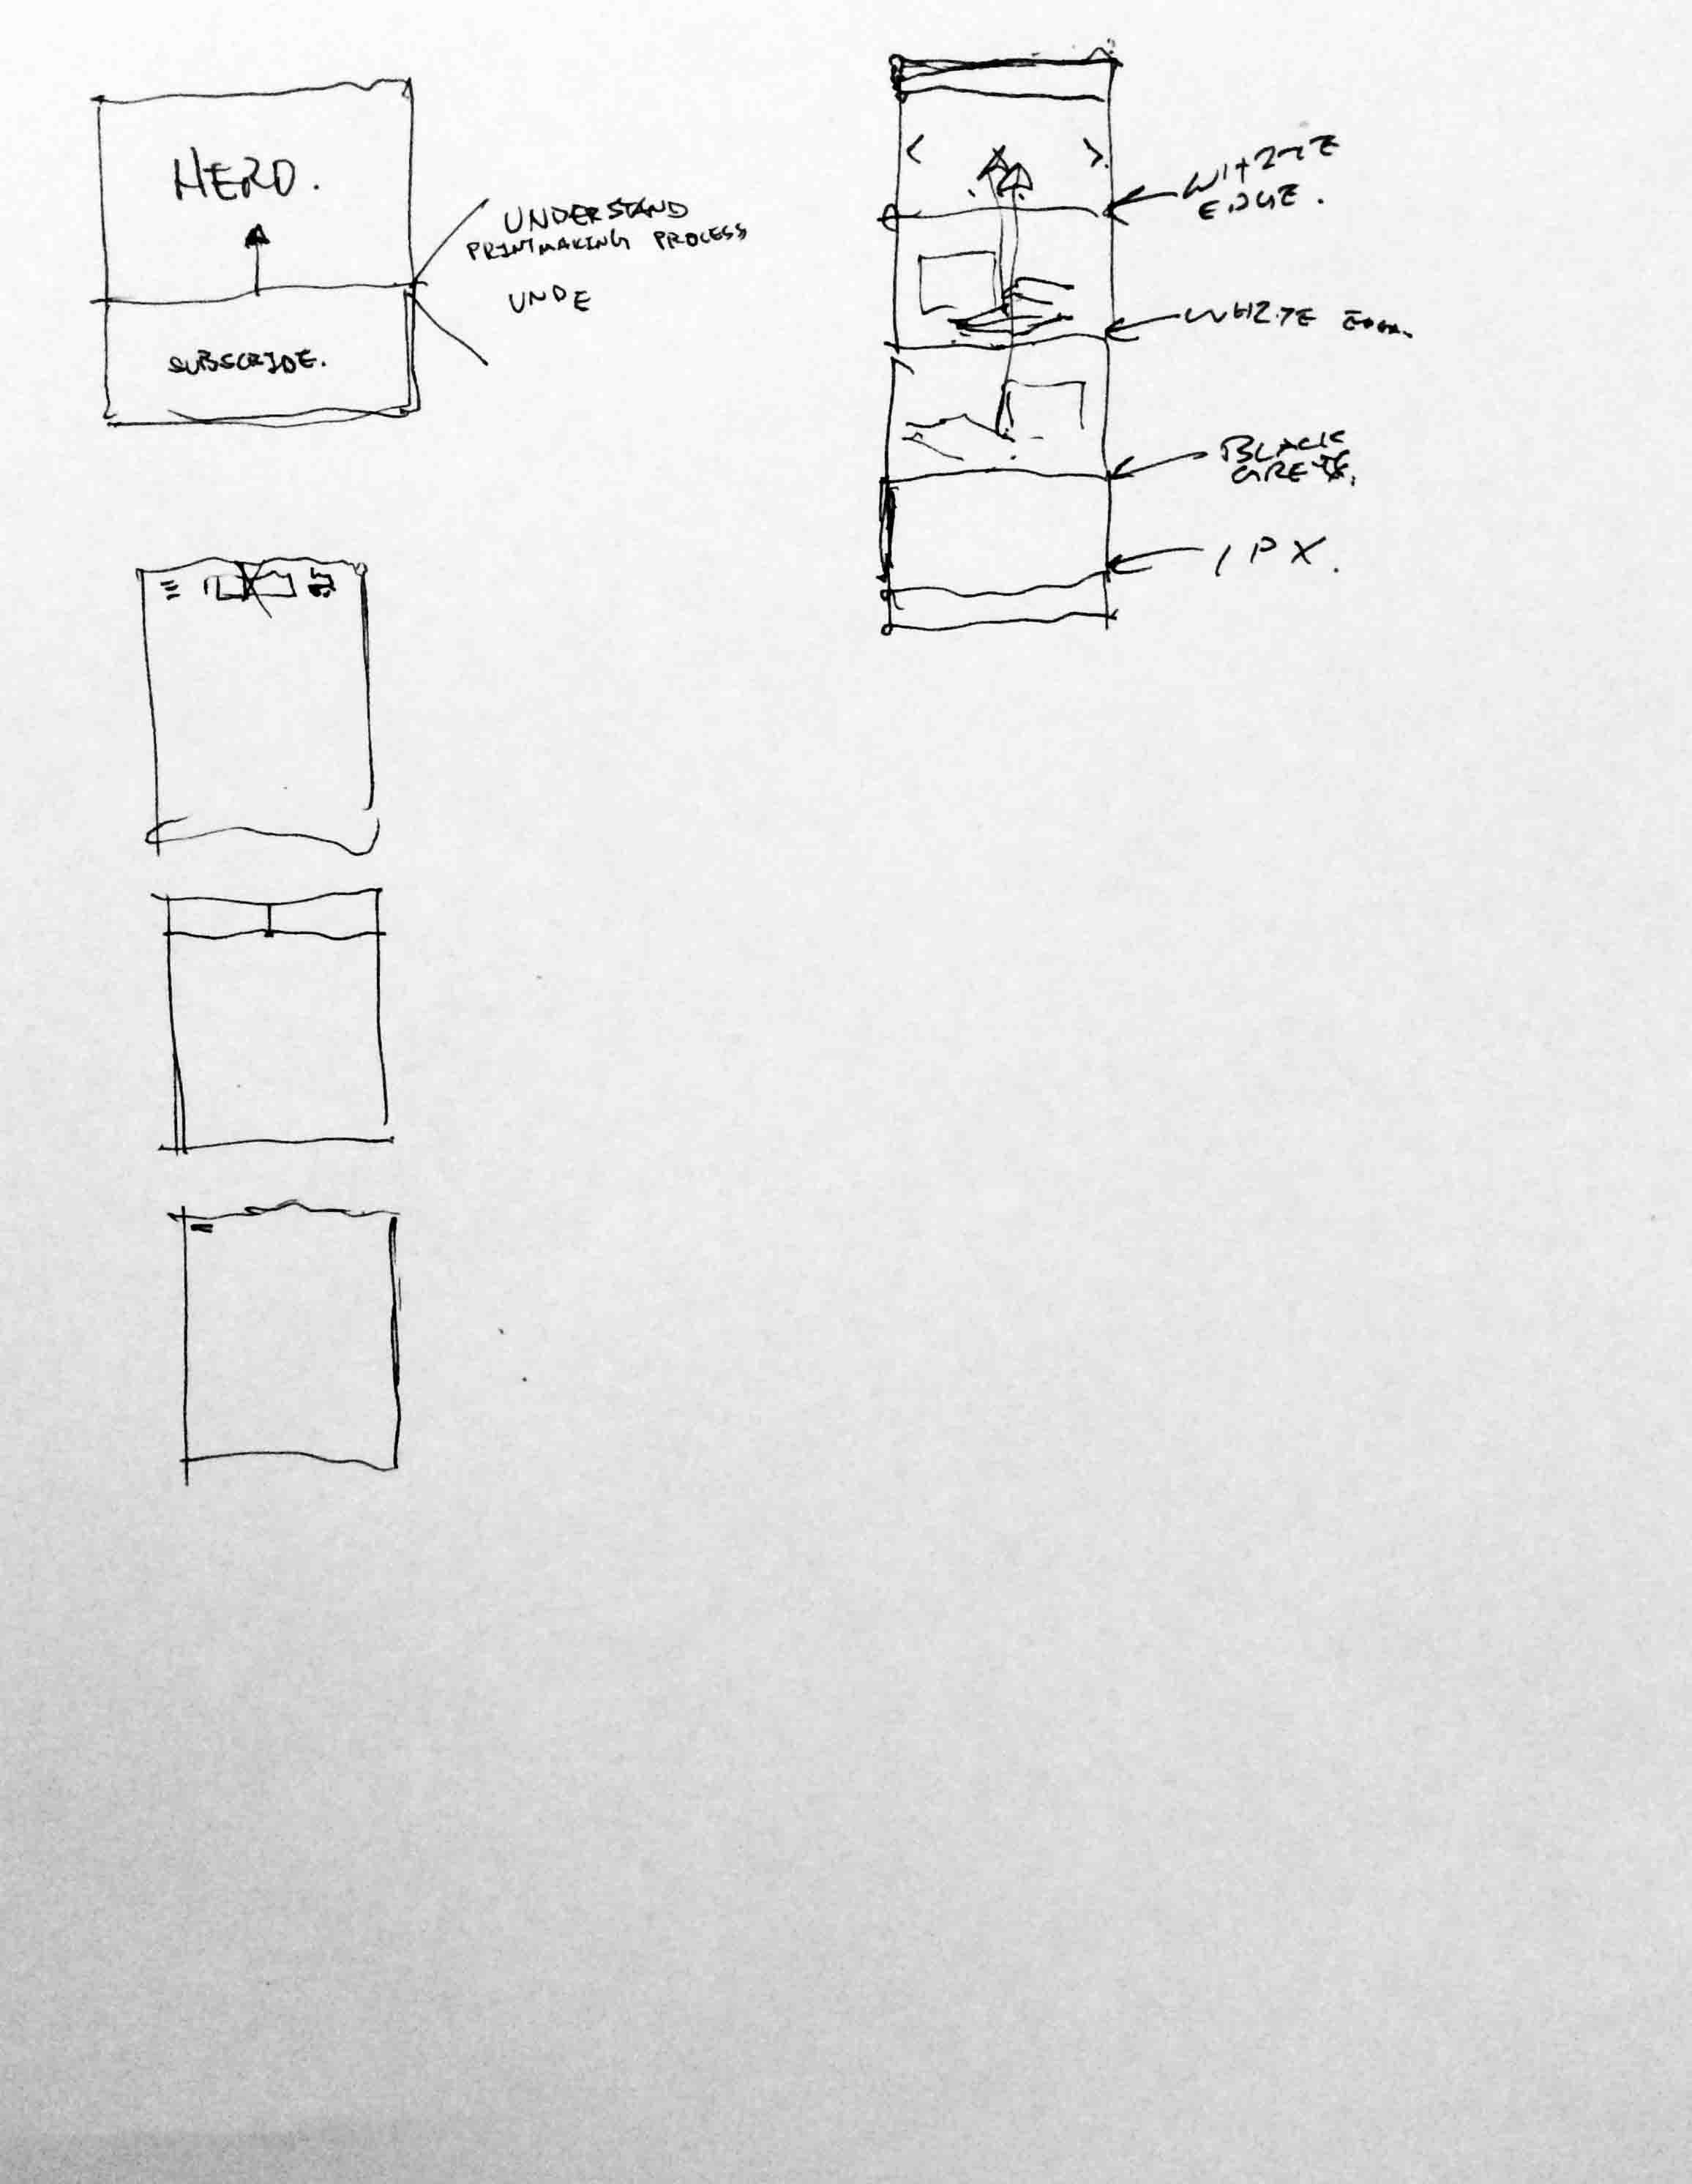 HERO.
SUBSCRIBE.
UNDERSTAND
PRINTMAKING PROCESS
UNDE
WHITE
EDGE.
WHITE EDGE.
BLACK
1PX.